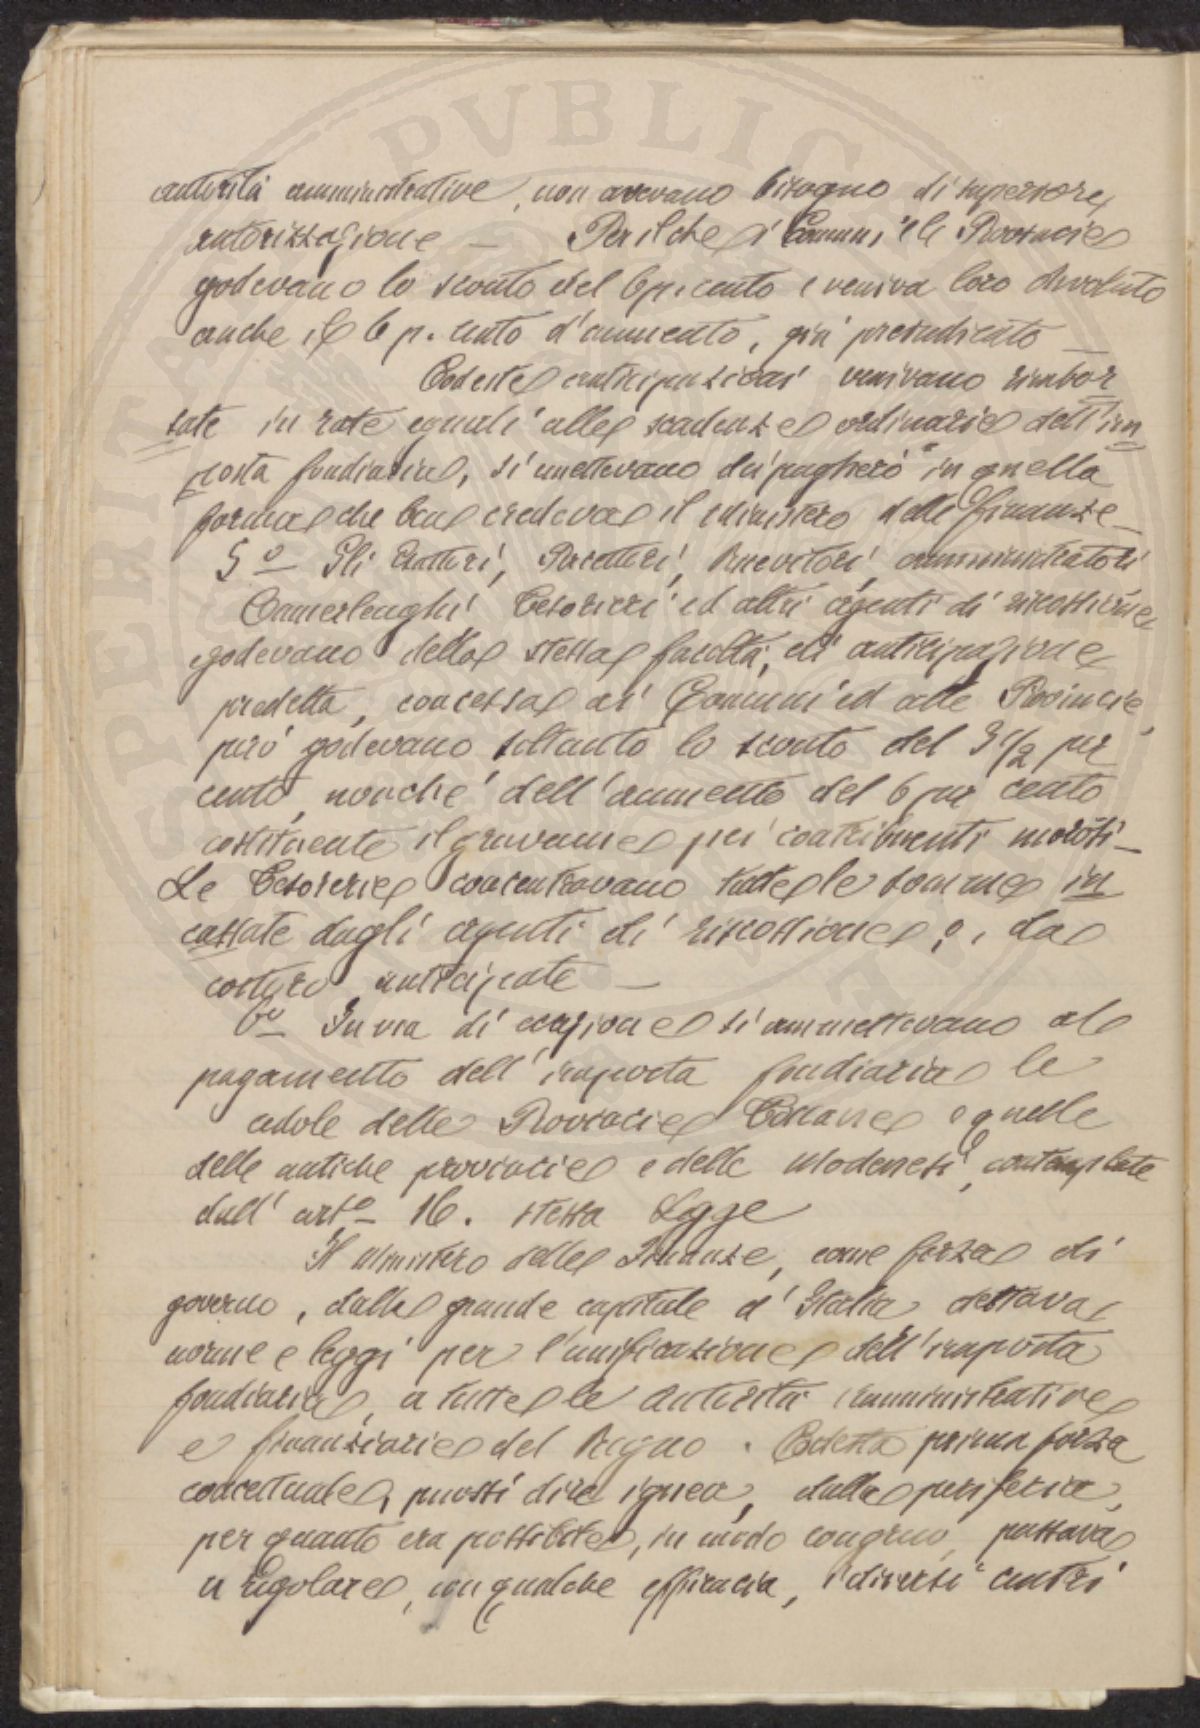 autorità amministrative, non avevano bisogno di superiore
autorizzazione — Perilché i Comuni e le Provincie
godevano lo sconto del 6 p. cento e veniva loro devoluto
anche il 6 p. cento d'aumento, già preindicato —
Codeste anticipazioni venivano rimbor
sate in rate eguali alle scadenze ordinarie dell'im
posta fondiaria, si emettevano dei pagherò in quella
forma che ben credeva il ministero delle finanze —
5º Gli Esattori, Percettori, Ricevitori, amministratori
Camerlenghi Tesorieri ed altri agenti di riscossione
godevano della stessa facoltà, di anticipazione
predetta, concessa ai Comuni ed alle Provincie,
però godevano soltanto lo sconto del 3 1/2 per
cento, nonché dell'aumento del 6 per cento
costituente il gravame pei contribuenti morosi —
Le Tesorerie concentravano tutte le somme in
cassate dagli agenti di riscossione, o, da
costoro anticipate —
6º In via di eccezione si ammettevano al
pagamento dell'imposta fondiaria le
cedole delle Provincie Toscane e quelle
delle antiche provincie e delle Modenesi, contemplate
dall' artº 16. stessa Legge
Il Ministero delle Finanze, come forza di
governo, dalla grande capitale d'Italia dettava
norme e leggi per l'unificazione dell'imposta
fondiaria, a tutte le autorità amministrative
e finanziarie del Regno. Codesta prima forza
concettuale, puossi dire ignea, dalla periferia,
per quanto era possibile, in modo congruo, passava
a regolare, con qualche efficacia, i diversi centri
PVBLICA